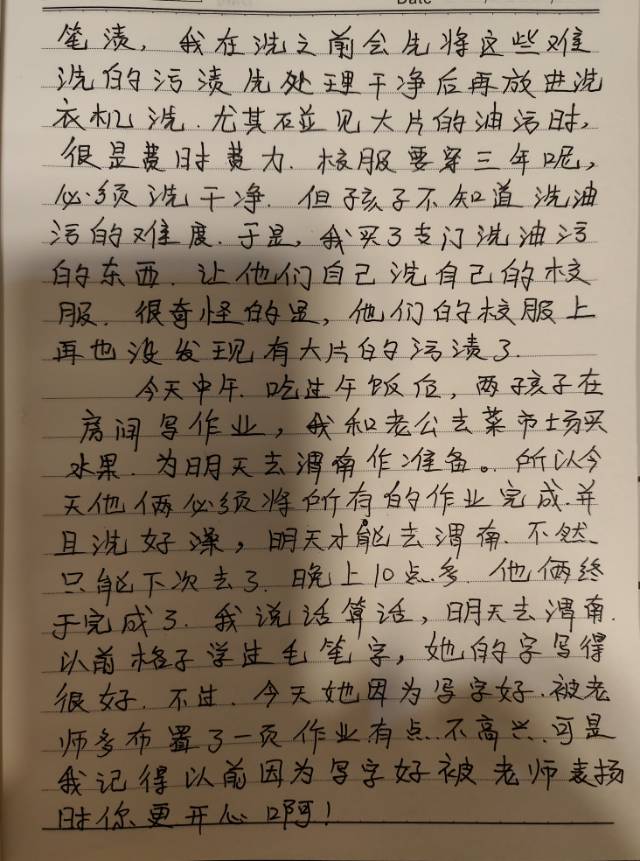 Date
笔渍，我在洗之前会先将这些难
洗的污渍先处理干净后再放进洗
衣机洗.尤其碰见大片的油污时，
很是费时费力.校服要穿三年呢，
必须洗干净.但孩子不知道洗油
污的难度.于是，我买了专门洗油污
的东西.让他们自己洗自己的校
服.很奇怪的是，他们的校服上
再也没发现有大片的污渍了.
今天中午.吃过午饭后，两孩子在
房间写作业，我和老公去菜市场买
水果.为明天去渭南作准备。所以今
天他俩必须将所有的作业完成.并
且洗好澡，明天才能去渭南.不然.
只能下次去了.晚上10点多.他俩终
于完成了.我说话算话，明天去渭南.
以前格子学过毛笔字，她的字写得
很好.不过.今天她因为写字好.被老
师多布置了一页作业有点.不高兴.可是
我记得以前因为写字好被老师表扬
时你更开心啊！